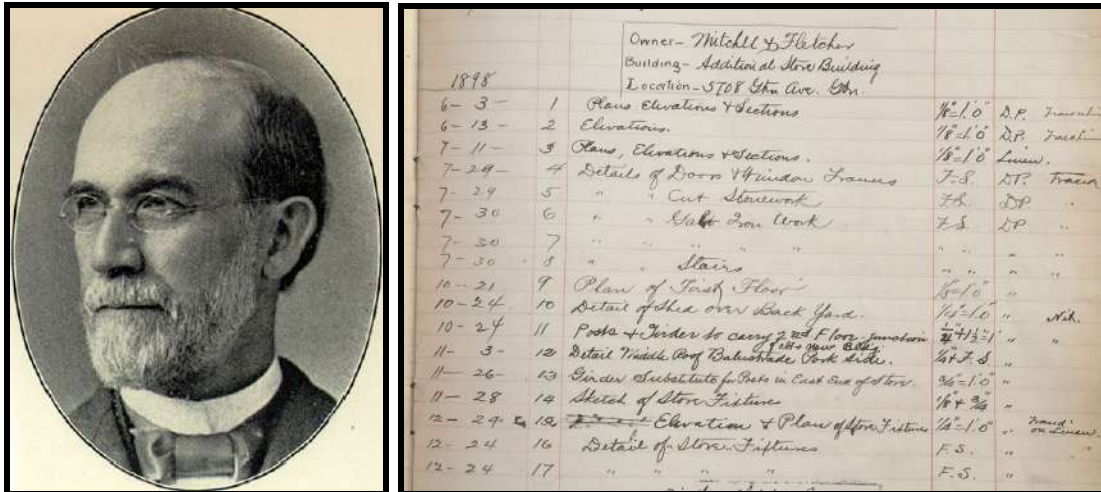 Owner- Mitchell & Fletcher
Building- Addition at Store Building
1898 Location- 5708 Gtn. Ave. Gtn.
6- 3- 1 Plans Elevations & Sections 1/8"=1'0" D.P.
6- 13- 2 Elevations. 1/8"=1'0" D.P.
7- 11- 3 Plans, Elevations & Sections. 1/8"=1'0" Linen.
7- 29- 4 Details of Doors & Window Frames F.S. D.P.
7- 29 5 " " Cut Stonework F.S. DP "
7- 30 6 " " Iron Work F.S. DP "
7- 30 7 " " " " " " " "
7- 30 8 " " Stairs " " " "
10- 21 9 Plan of First Floor 1/8"=1'0" "
10- 24 10 Detail of Shed over Back Yard. 1/4"=1'0" "
10- 24 11 Posts & Girder to carry 2nd Floor junction " "
of old & new Bldg.
11- 3- 12 Detail Middle Roof Balustrade Side. F.S. "
11- 26 13 Girder Substitute for Posts in East End of Store. 3/4"=1'0" "
11- 28 14 Sketch of Store Fixtures 1/8 & 3/4 "
12- 15 Elevation & Plan of Store Fixtures 1/2"=1'0" " on Linen.
12- 24 16 Detail of Store Fixtures F.S. " "
12- 24 17 " " " " F.S. "